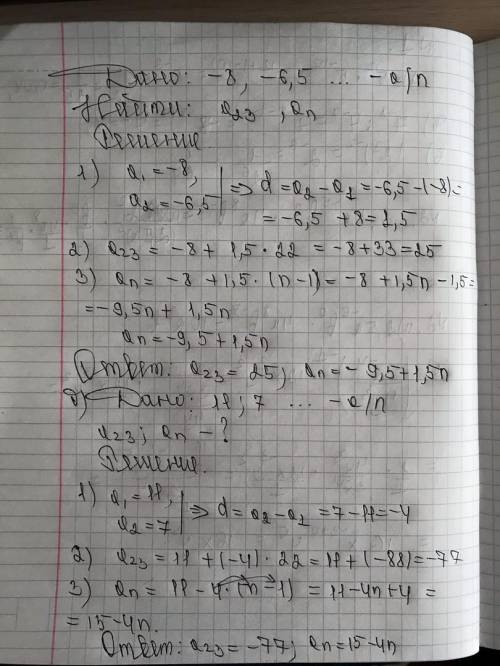 Дано: -8, -6,5 ... - а/п
Найти: a₂₃, aₙ
Решение
1) a₁ = -8,
a₂ = -6,5 | ⇒ d = a₂ - a₁ = -6,5 - (-8) =
= -6,5 + 8 = 1,5
2) a₂₃ = -8 + 1,5 · 22 = -8 + 33 = 25
3) aₙ = -8 + 1,5 · (n - 1) = -8 + 1,5n - 1,5 =
= -9,5n + 1,5n
aₙ = -9,5 + 1,5n
Ответ: a₂₃ = 25; aₙ = -9,5 + 1,5n
б) Дано: 11; 7 ... - а/п
a₂₃; aₙ - ?
Решение.
1) a₁ = 11,
a₂ = 7 | ⇒ d = a₂ - a₁ = 7 - 11 = -4
2) a₂₃ = 11 + (-4) · 22 = 11 + (-88) = -77
3) aₙ = 11 - 4 · (n - 1) = 11 - 4n + 4 =
= 15 - 4n.
Ответ: a₂₃ = -77; aₙ = 15 - 4n